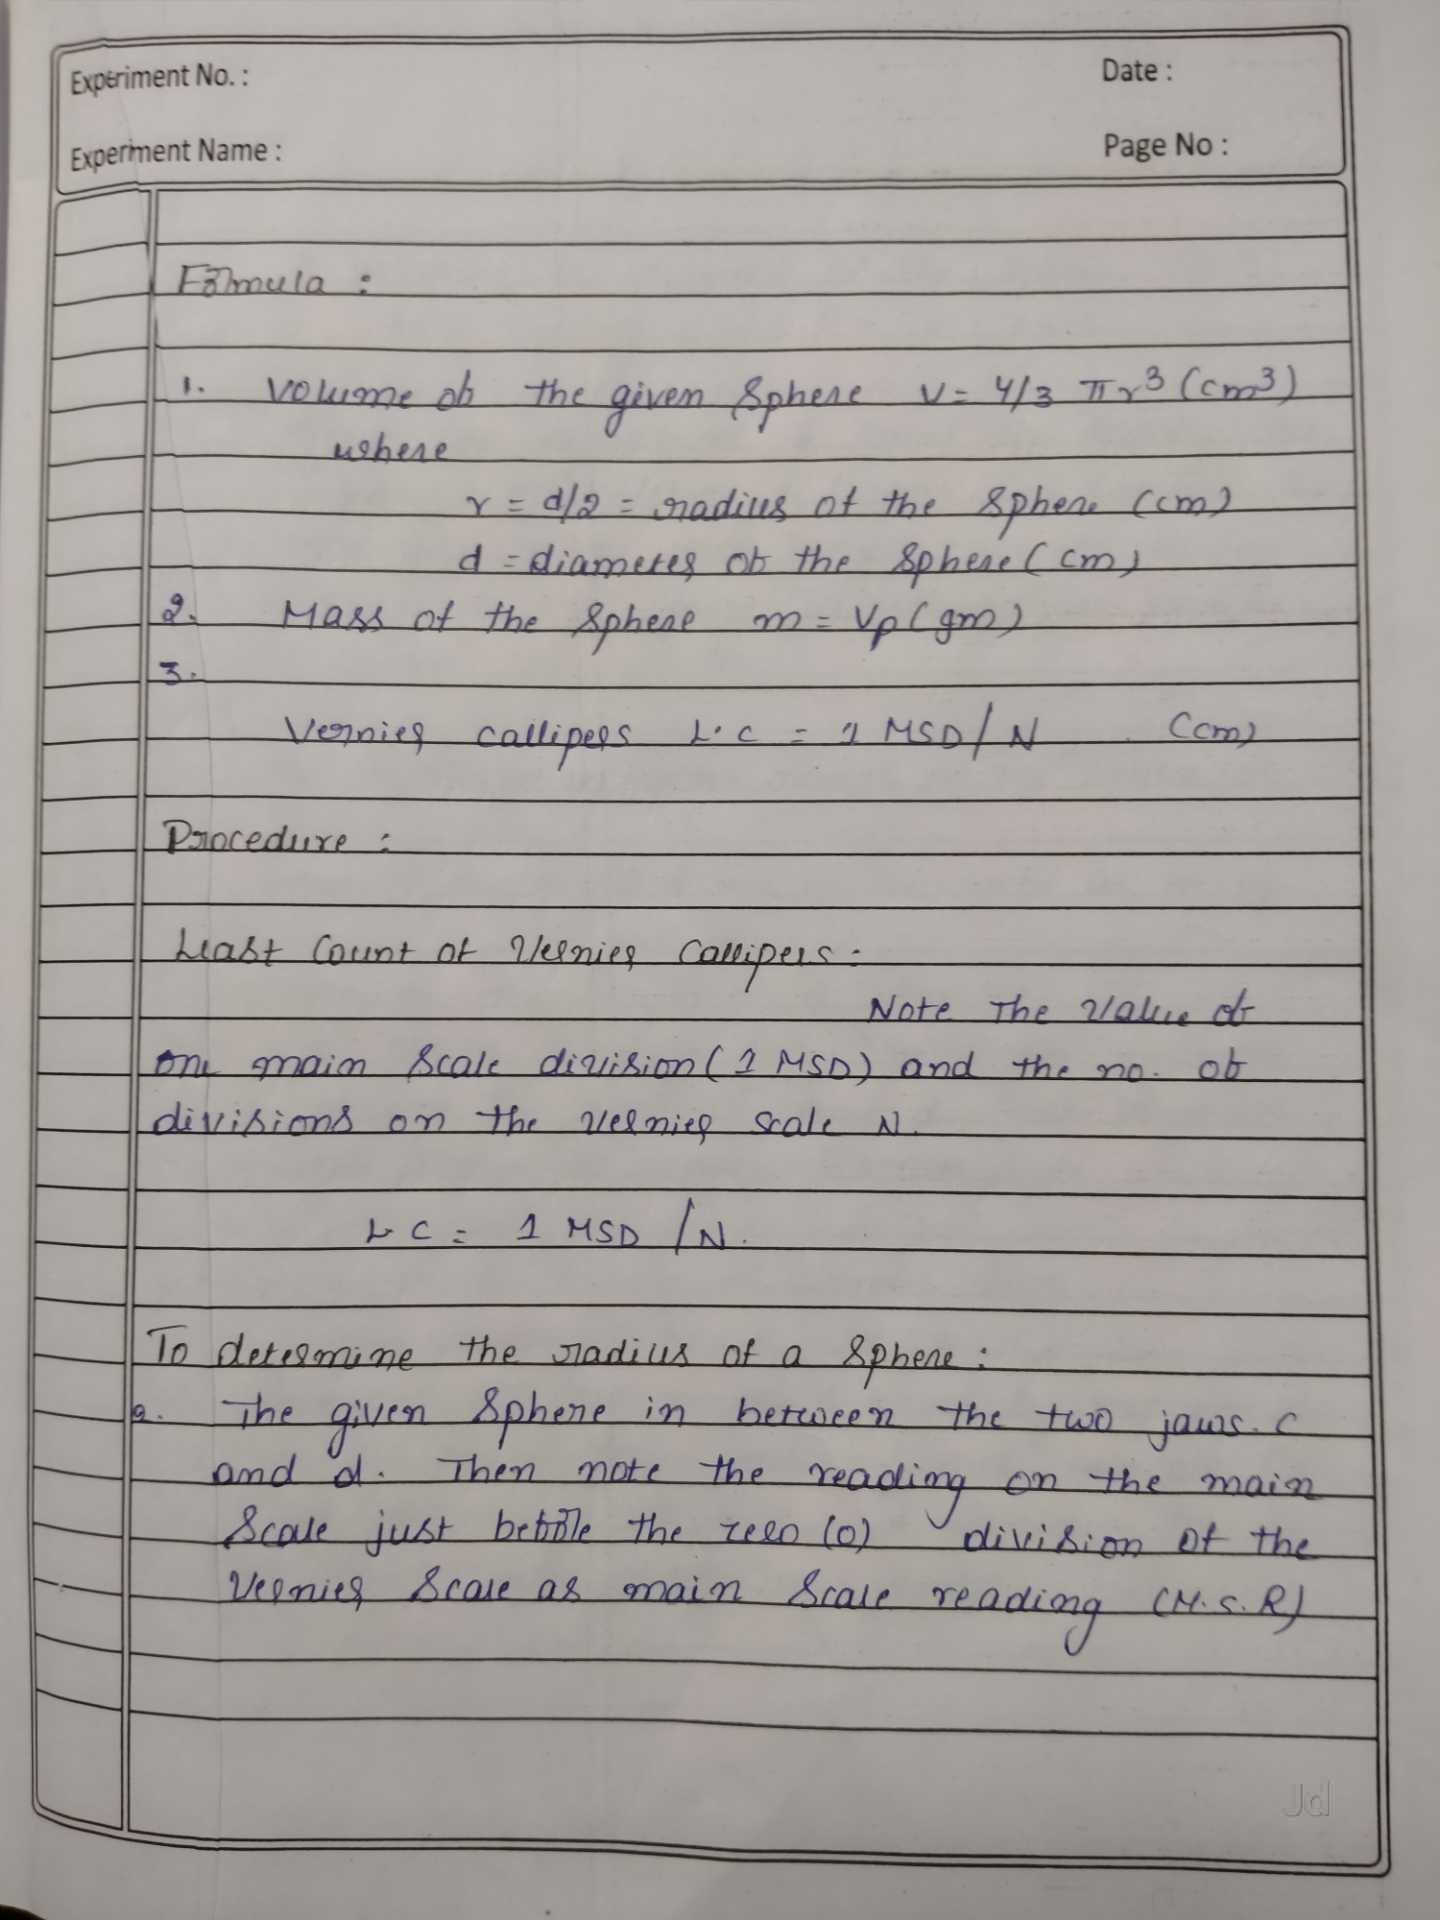 Experiment No. :
Date :
Experiment Name :
Page No :
Formula :
1. Volume of the given Sphere V = 4/3 πr³ (cm³)
where
r = d/2 = radius of the Sphere (cm)
d = diameter of the Sphere (cm)
2. Mass of the Sphere m = Vρ (gm)
3.
Vernier callipers L.C = 1 MSD/N (cm)
Procedure :
Least Count of Vernier Callipers :
Note The Value of
one main Scale division (1 MSD) and the no. of
divisions on the vernier scale N.
L C = 1 MSD /N.
To determine the radius of a Sphere :
a. The given Sphere in between the two jaws. c
and d. Then note the reading on the main
Scale just before the zero (0) division of the
Vernier Scale as main Scale reading (M.S.R)
Jd